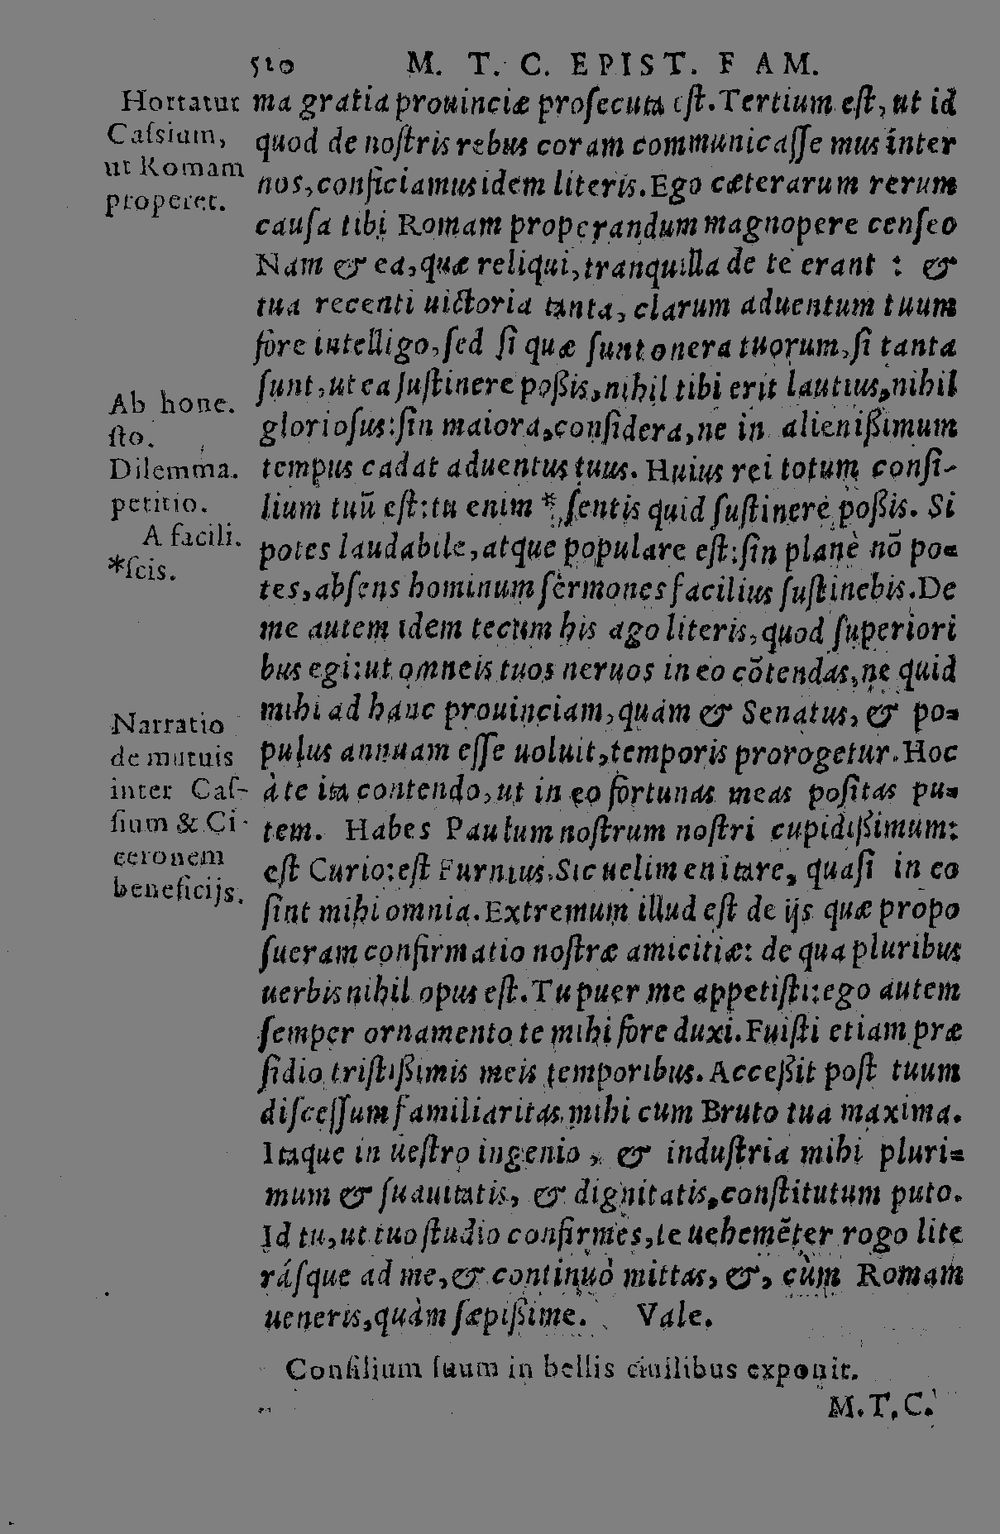 510 M. T. C. EPIST. FAM.
Hortatur
Caſsium,
ut Romam
properet.
ma gratia prouinciæ proſecuta eſt. Tertium eſt, ut id
quod de noſtris rebus coram communicaſſe mus inter
nos, conficiamus idem literis. Ego cæterarum rerum
cauſa tibi Romam properandum magnopere cenſeo
Nam & ea, quæ reliqui, tranquilla de te erant : &
tua recenti uictoria tanta, clarum aduentum tuum
fore intelligo, ſed ſi quæ ſunt onera tuorum, ſi tanta
ſunt, ut ea ſuſtinere poßis, nihil tibi erit lautius, nihil
glorioſus: ſin maiora, conſidera, ne in alienißimum
tempus cadat aduentus tuus. Huius rei totum conſi-
lium tuũ eſt: tu enim * ſentis quid ſuſtinere poßis. Si
potes laudabile, atque populare eſt: ſin planè nõ po-
tes, abſens hominum ſermones facilius ſuſtinebis. De
me autem idem tecum his ago literis, quod ſuperiori
bus egi: ut omneis tuos neruos in eo cõtendas, ne quid
mihi ad hanc prouinciam, quam & Senatus, & po-
pulus annuam eſſe uoluit, temporis prorogetur. Hoc
à te ita contendo, ut in eo fortunas meas poſitas pu-
tem. Habes Paulum noſtrum noſtri cupidißimum:
eſt Curio: eſt Furnius. Sic uelim enitare, quaſi in eo
ſint mihi omnia. Extremum illud eſt de ijs quæ propo
ſueram confirmatio noſtræ amicitiæ: de qua pluribus
uerbis nihil opus eſt. Tu puer me appetiſti: ego autem
ſemper ornamento te mihi fore duxi. Fuiſti etiam præ
ſidio triſtißimis meis temporibus. Acceßit poſt tuum
diſceſſum familiaritas mihi cum Bruto tua maxima.
Itaque in ueſtro ingenio, & induſtria mihi pluri-
mum & ſuauitatis, & dignitatis, conſtitutum puto.
Id tu, ut tuo ſtudio confirmes, te uehemẽter rogo lite
ráſque ad me, & continuò mittas, &, cùm Romam
ueneris, quàm ſæpißime. Vale.
Ab hone.
ſto.
Dilemma.
petitio.
A facili.
*ſcis.
Narratio
de mutuis
inter Caſ-
ſium & Ci-
ceronem
beneficijs.
Conſilium ſuum in bellis ciuilibus exponit.
M.T.C.